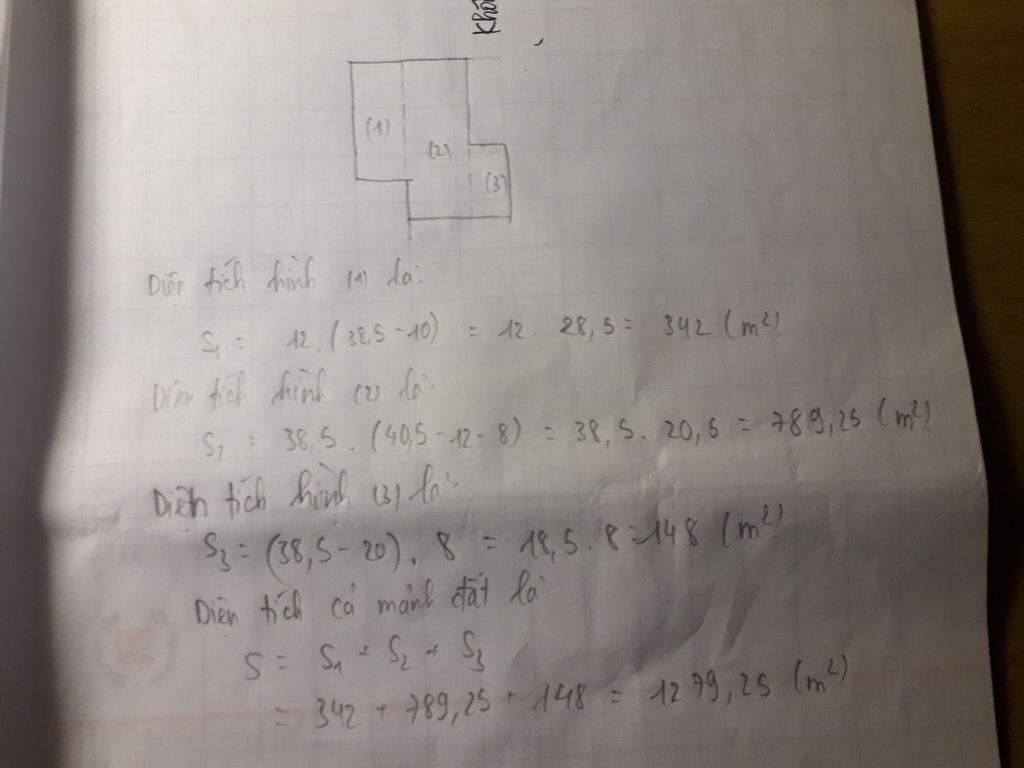 Khô
(1)
(2)
(3)
Diện tích hình (1) là:
S₁ = 12.(38,5-10) = 12. 28,5 = 342 (m²)
Diện tích hình (2) là:
S₂ = 38,5. (40,5-12-8) = 38,5. 20,5 = 789,25 (m²)
Diện tích hình (3) là:
S₃ = (38,5-20). 8 = 18,5. 8 = 148 (m²)
Diện tích cả mảnh đất là:
S = S₁ + S₂ + S₃
= 342 + 789,25 + 148 = 1279,25 (m²)